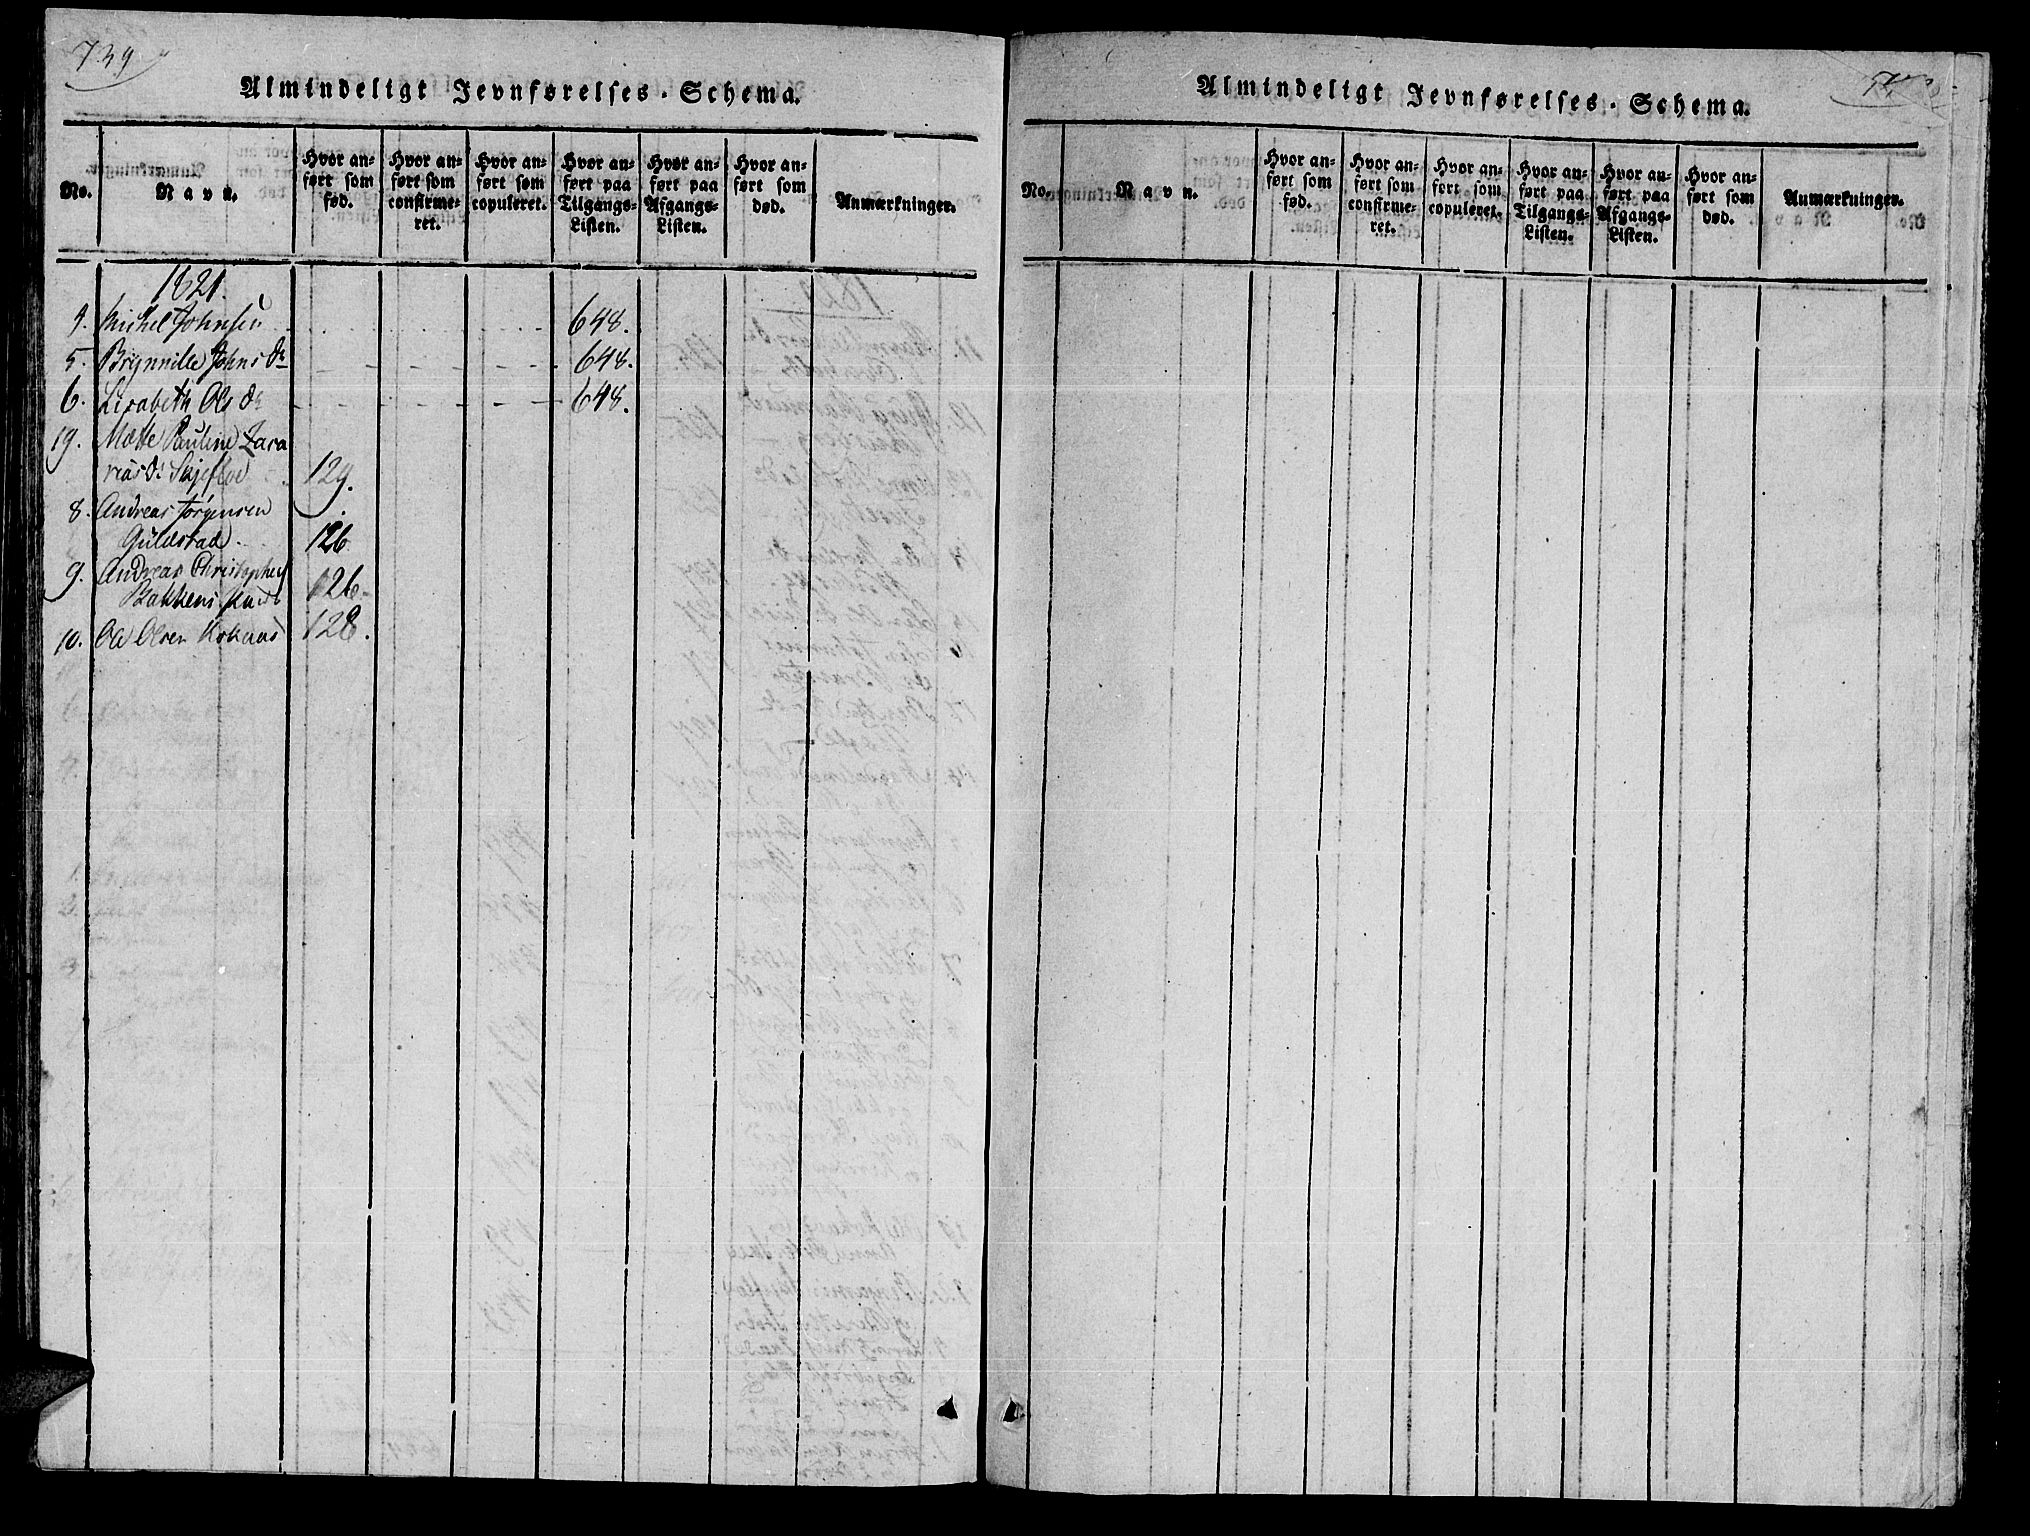 739
Almindeligt Jevnførelses-Schema.
No.
Navn.
Hvor anført som fød.
Hvor anført som confirmeret.
Hvor anført som copuleret.
Hvor anført paa Tilgangs-Listen.
Hvor anført paa Afgangs-Listen.
Hvor anført som død.
Anmærkninger.
1821.
4. Michel Johnsen 648.
5. Brynnille Johns Dr 648.
6. Lisabeth Ols Dr 648.
19. Mætte Pauline Zaca
riasDr Skjefloe 129.
8. Andreas Jørgensen
Guldstad 126
9. Andreas Christopher
Bakkens 126.
10. Ole Olsen 128.
Almindeligt Jevnførelses-Schema.
No.
Navn.
Hvor anført som fød.
Hvor anført som confirmeret.
Hvor anført som copuleret.
Hvor anført paa Tilgangs-Listen.
Hvor anført paa Afgangs-Listen.
Hvor anført som død.
Anmærkninger.